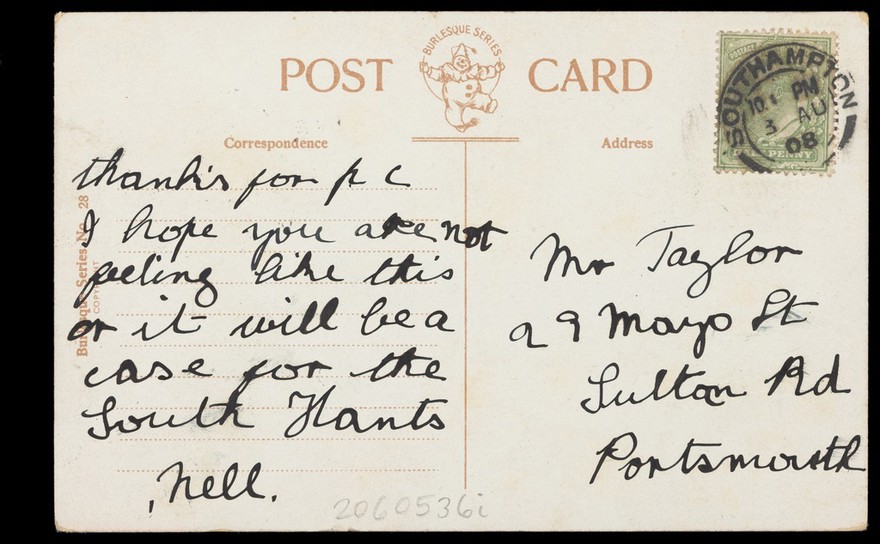 BURLESQUE SERIES
POST CARD
Correspondence
Address
Burlesque Series No. 28
COPYRIGHT
SOUTHAMPTON
PM
3 AU
08
PENNY
thanks for p c
I hope you are not
feeling like this
or it will be a
case for the
South Hants
Nell.
Mr Taylor
29 Mayo St
Sulton Rd
Portsmouth
2060536i